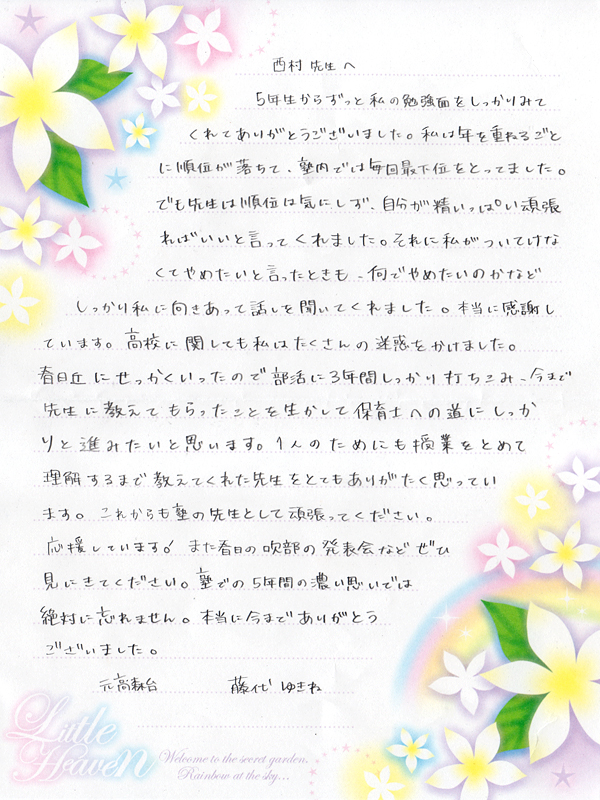 西村 先生へ
5年生からずっと私の勉強面をしっかりみて
くれてありがとうございました。私は年を重ねるごと
に順位が落ちて、塾内では毎回最下位をとってました。
でも先生は順位は気にしず、自分が精いっぱい頑張
ればいいと言ってくれました。それに私がついてけな
くてやめたいと言ったときも、何でやめたいのかなど
しっかり私に向きあって話しを聞いてくれました。本当に感謝し
ています。高校に関しても私はたくさんの迷惑をかけました。
春日丘にせっかくいったので部活に3年間しっかり打ちこみ、今まで
先生に教えてもらったことを生かして保育士への道にしっか
りと進みたいと思います。1人のためにも授業をとめて
理解するまで教えてくれた先生をとてもありがたく思ってい
ます。これからも塾の先生として頑張ってください。
応援しています!また春日の吹部の発表会などぜひ
見にきてください。塾での5年間の濃い思いでは
絶対に忘れません。本当に今までありがとう
ございました。
元高森台 藤代 ゆきね
Little
Heaven
Welcome to the secret garden.
Rainbow at the sky...